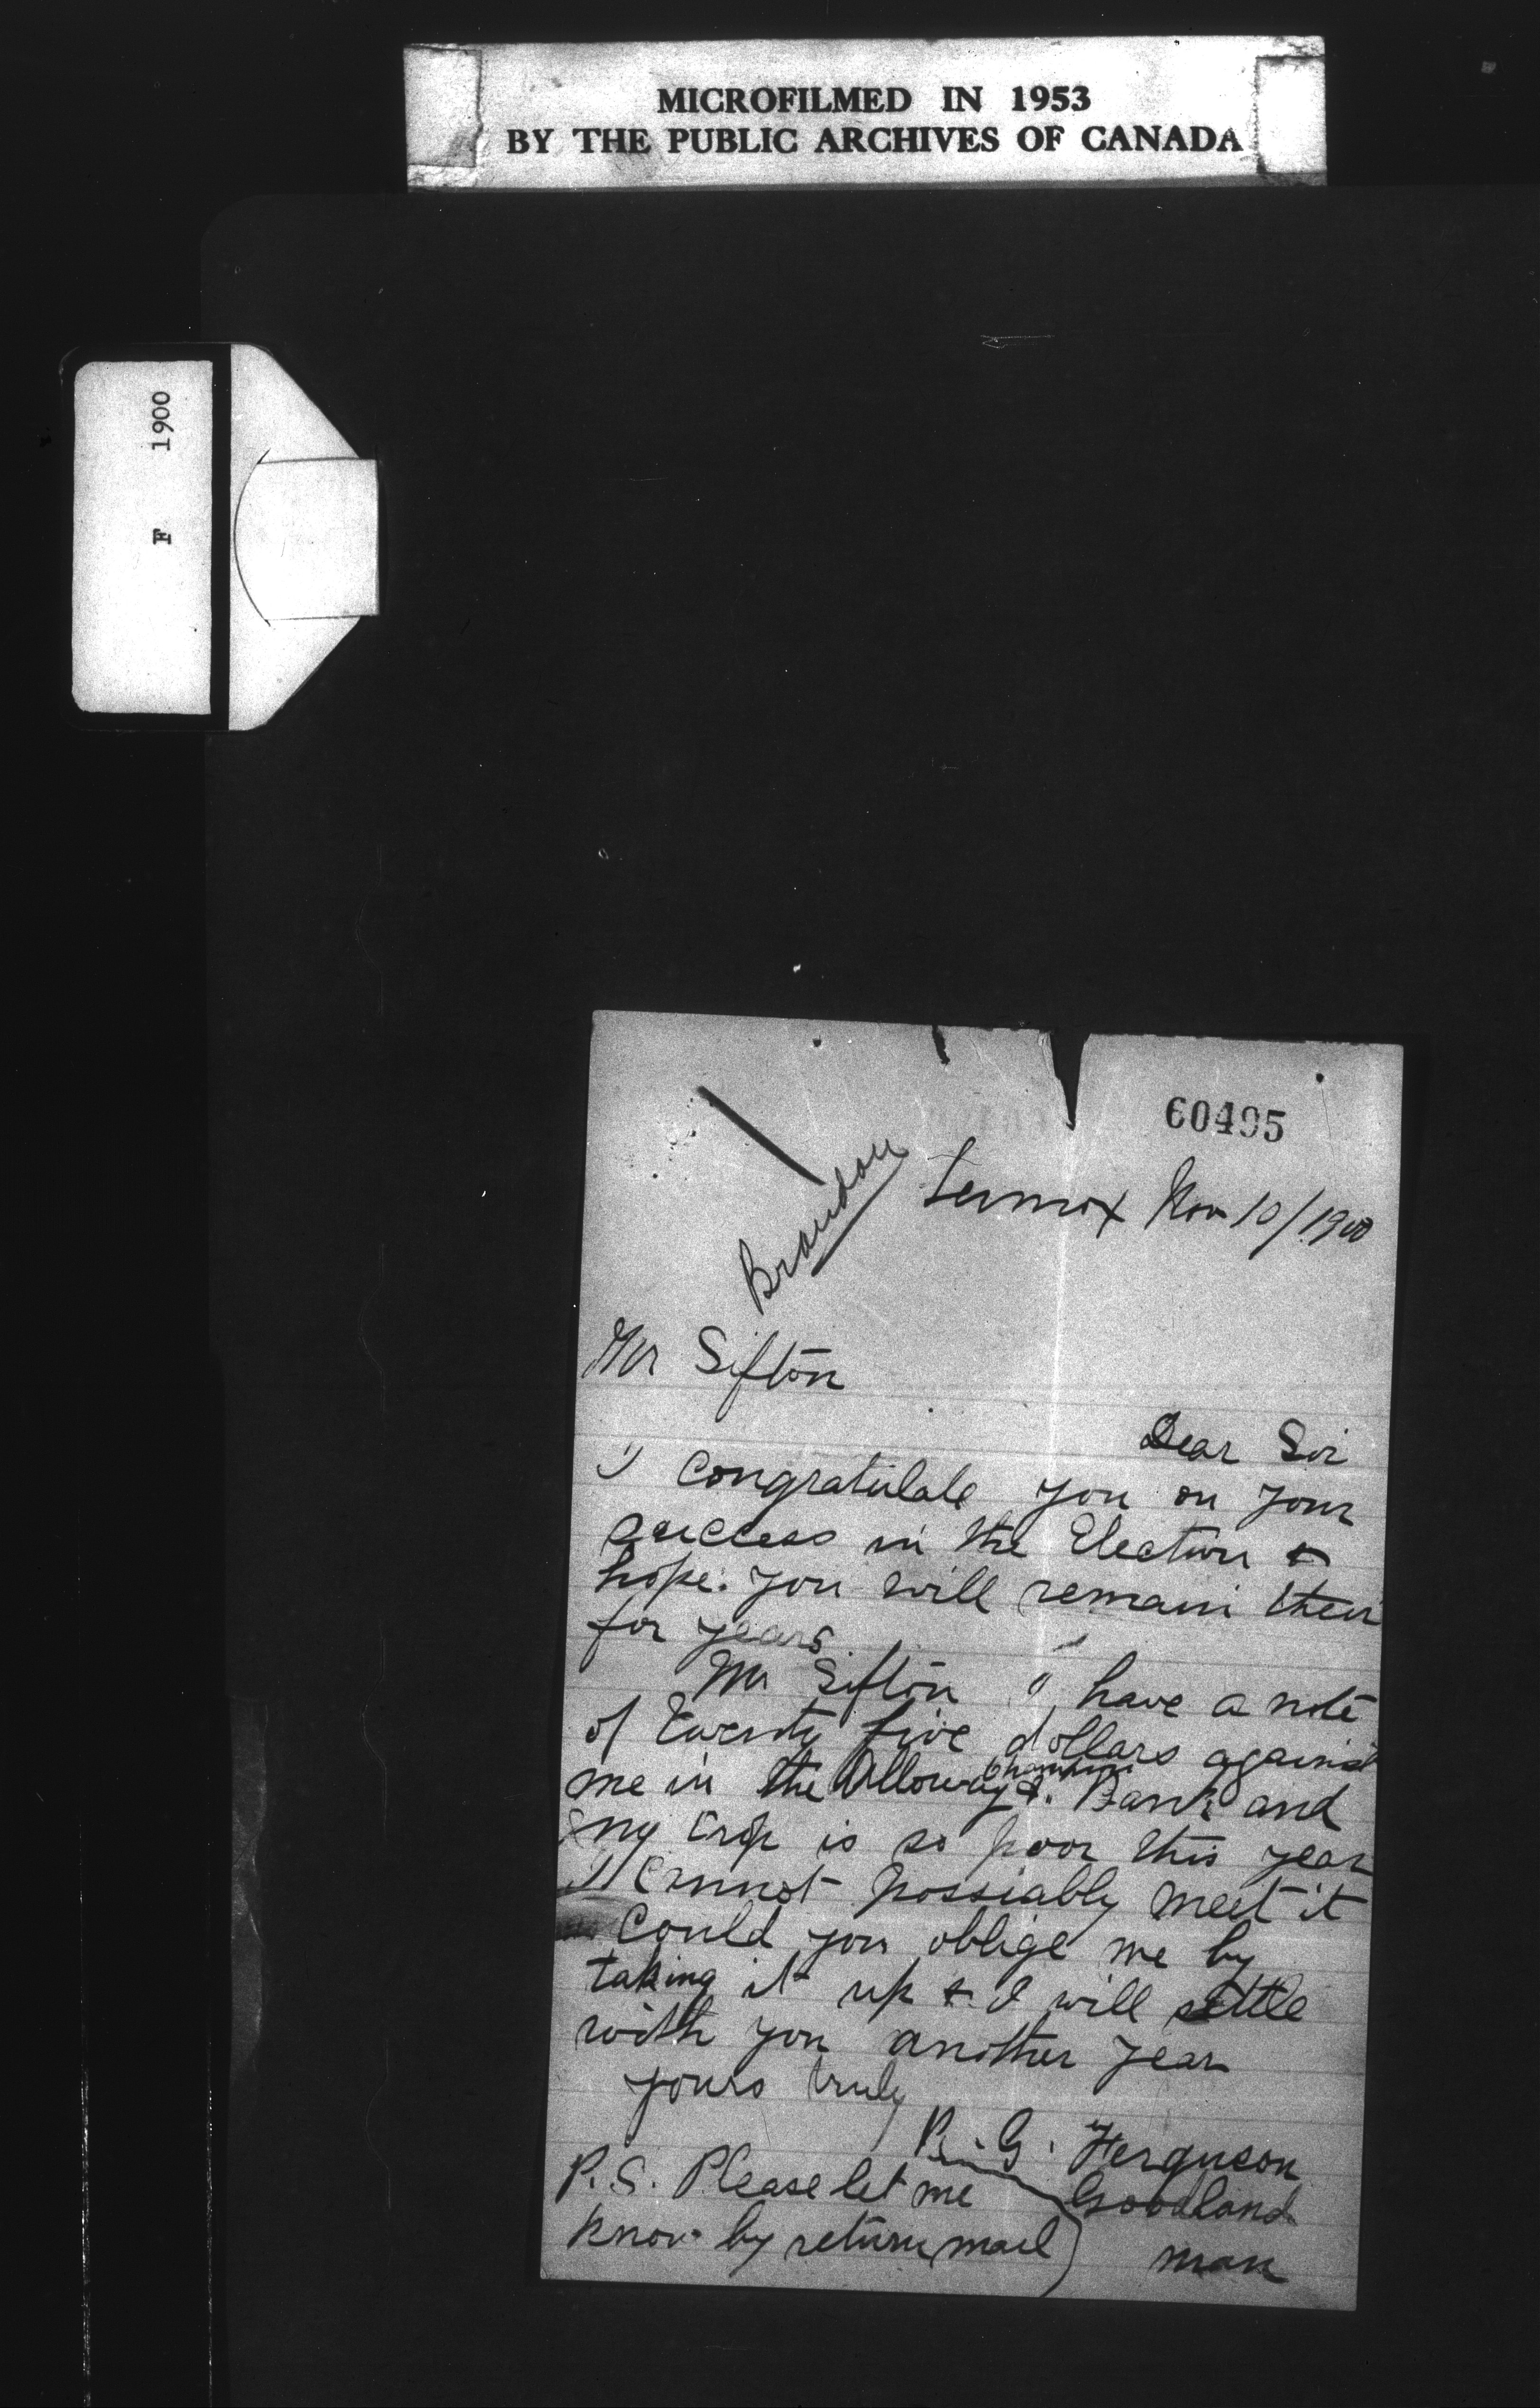 MICROFILMED IN 1953
BY THE PUBLIC ARCHIVES OF CANADA
F 1900
60495
Brandon
Lennox Nov 10/1900
Mr Sifton
Dear Sir
I congratulate you on your
success in the Election &
hope you will remain their
for years
Mr Sifton I have a note
of twenty five dollars against
Champion
me in the Alloway &. Bank and
my crop is so poor this year
I cannot possiably meet it
could you oblige me by
taking it up & I will settle
with you another year
yours truly
B. G. Ferguson
P.S. Please let me Goodland
know by return mail) man